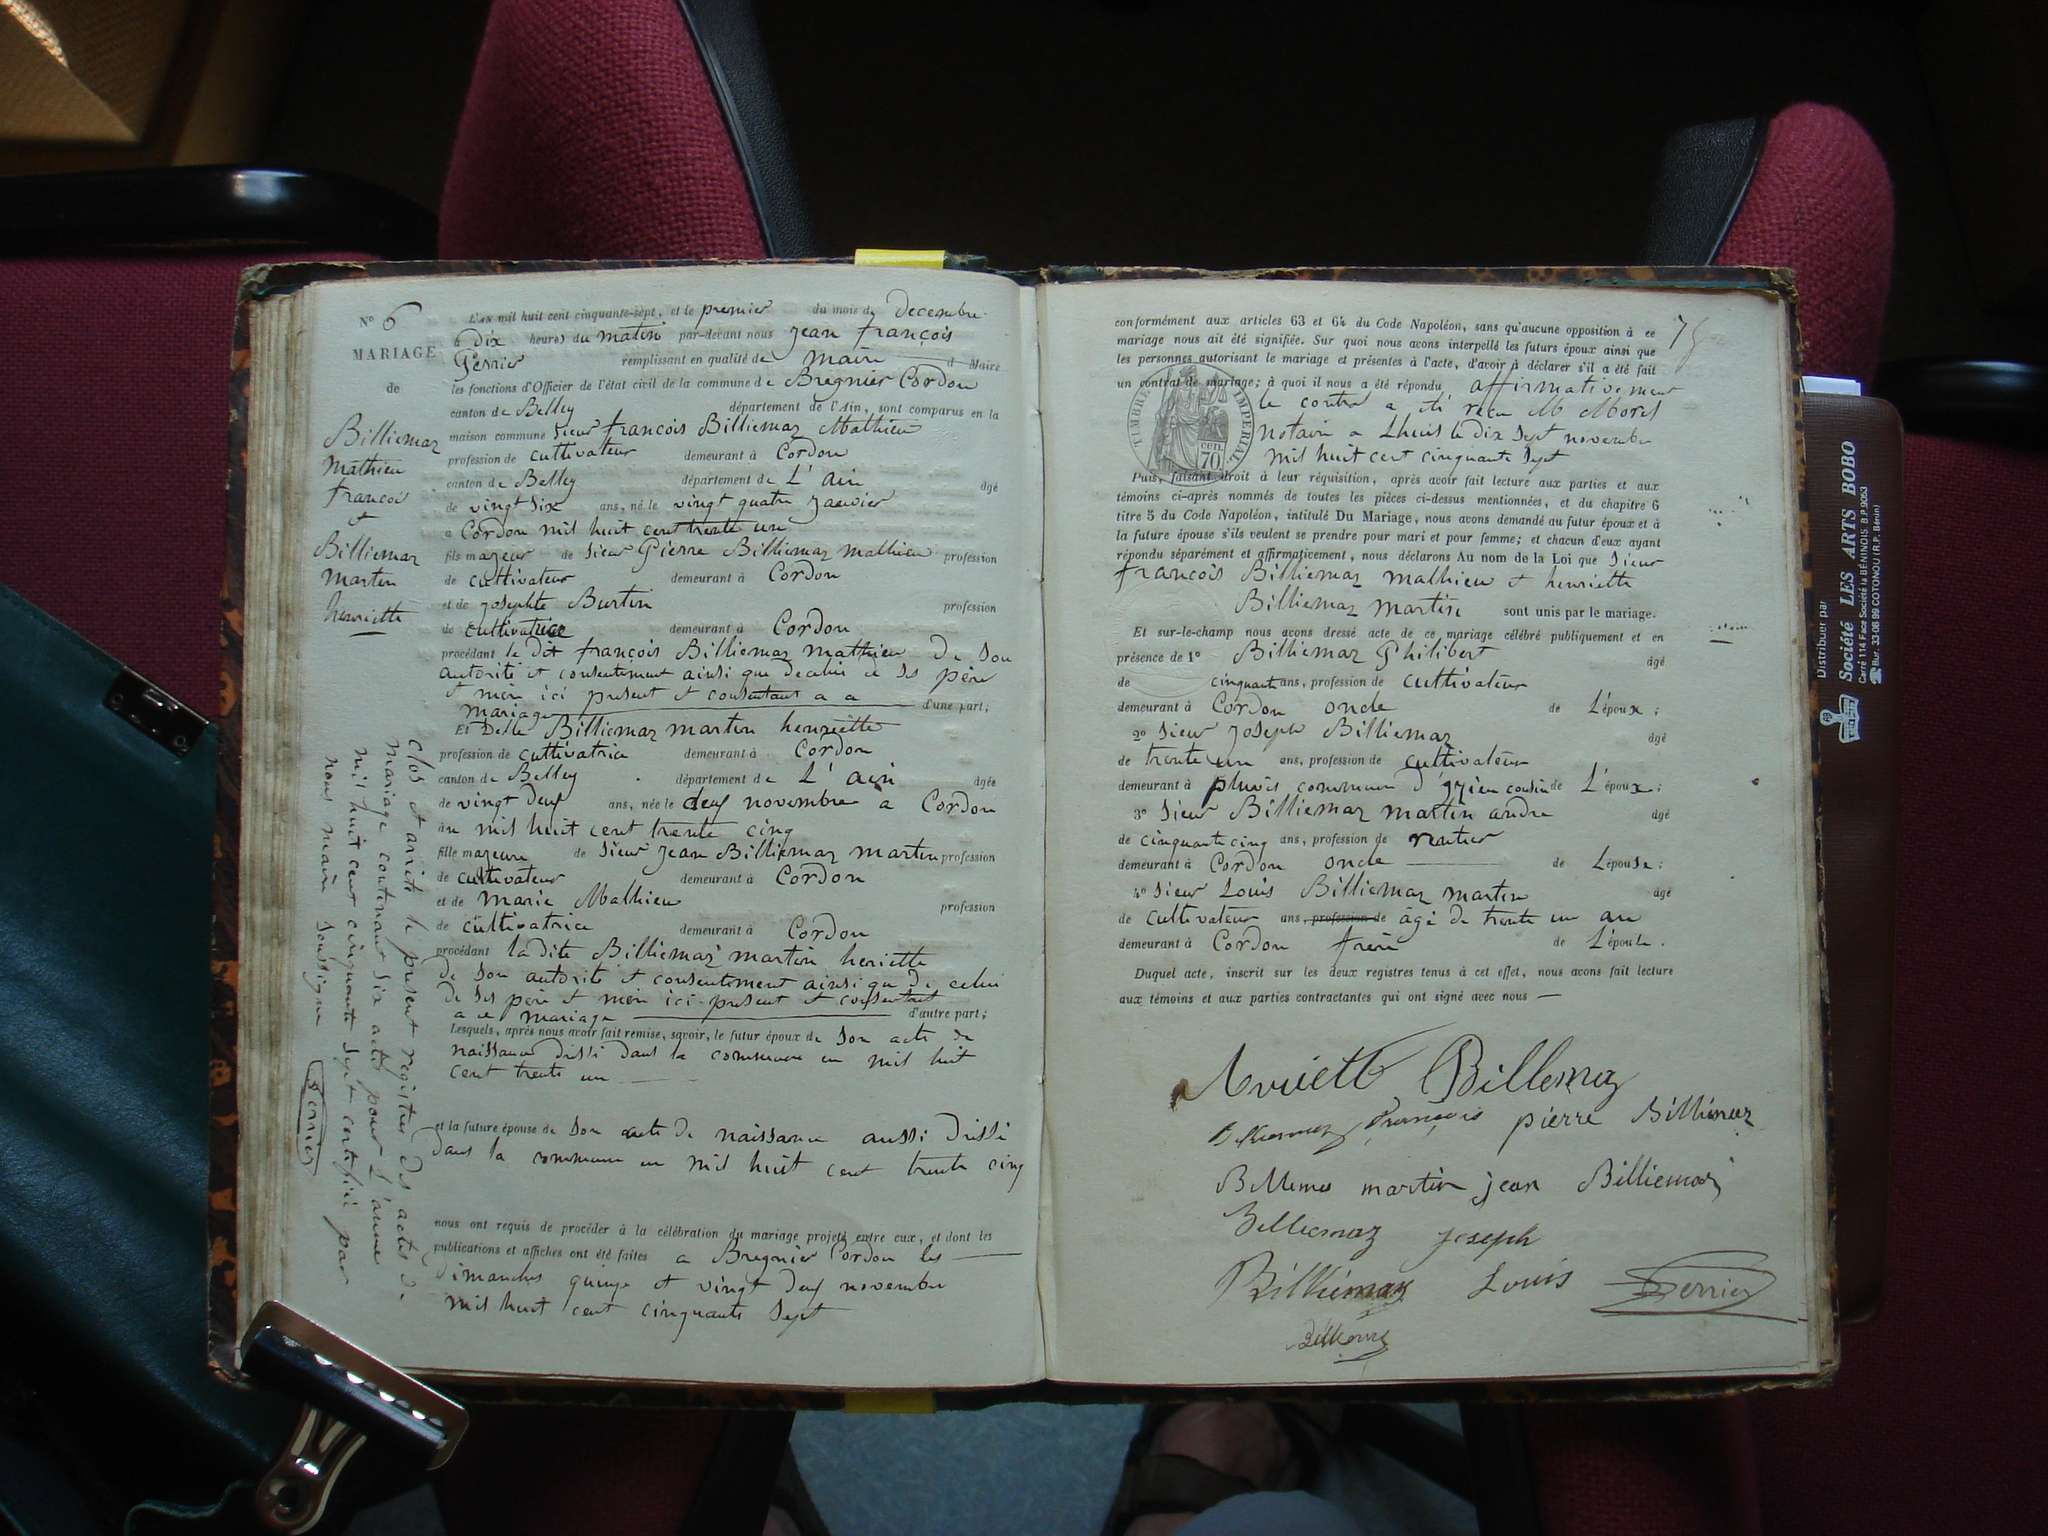 N° 6
MARIAGE
de
Billiemaz
Mathieu
francois
et
Billiemaz
martin
henriette
L'AN mil huit cent cinquante-sept, et le premier du mois de Decembre
a Dix heures du matin par-devant nous jean françois
Perrier remplissant en qualité de maire d Maire
les fonctions d'Officier de l'état civil de la commune de Bregnier Cordon
canton de Belley département de l'Ain, sont comparus en la
maison commune Sieur françois Billiemaz Mathieu
profession de cultivateur demeurant à Cordon
canton de Belley département de L'ain âgé
de vingt six ans, né le vingt quatre janvier
a Cordon mil huit cent trente un
fils majeur de Sieur Pierre Billiemaz mathieu profession
de cultivateur demeurant à Cordon
et de josephte Burtin profession
de cultivatrice demeurant à Cordon
procédant le dit françois Billiemaz mathieu De Son
autorité et consentement ainsi que de celui de Ses père
et mère ici présent et consentant a ce
mariage d'une part;
Et Delle Billiemaz martin henriette
profession de cultivatrice demeurant à Cordon
canton de Belley département de L'ain âgée
de vingt deux ans, née le deux novembre a Cordon
an mil huit cent trente cinq
fille majeure de Sieur jean Billiemaz martin profession
de cultivateur demeurant à Cordon
et de marie Mathieu profession
de cultivatrice demeurant à Cordon
procédant la dite Billiemaz martin heriette
De Son autorité et consentement ainsi que De celui
De Ses père et mère ici present et consentant
a ce mariage d'autre part;
Lesquels, après nous avoir fait remise, savoir, le futur époux de Son acte de
naissance dressé dans la commune en mil huit
cent trente un
et la future épouse de Son acte de naissance aussi dressé
dans la commune en mil huit cent trente cinq
nous ont requis de procéder à la célébration du mariage projeté entre eux, et dont les
publications et affiches ont été faites a Bregnier Cordon les
Dimanches quinze et vingt deux novembre
mil huit cent cinquante Sept
Clos et arrêté le présent registre des actes de
mariage contenant Six actes pour L'année
mil huit cent cinquante Sept certifié par
nous maire Soussigné
Perrier
75
conformément aux articles 63 et 64 du Code Napoléon, sans qu'aucune opposition à ce
mariage nous ait été signifiée. Sur quoi nous avons interpellé les futurs époux ainsi que
les personnes autorisant le mariage et présentes à l'acte, d'avoir à déclarer s'il a été fait
un contrat de mariage; à quoi il nous a été répondu affirmativement
le contrat a été reçu M Morel
notaire a Lhuis le dix Sept novembre
mil huit cent cinquante Sept
TIMBRE IMPERIAL
cen
70
Puis, faisant droit à leur réquisition, après avoir fait lecture aux parties et aux
témoins ci-après nommés de toutes les pièces ci-dessus mentionnées, et du chapitre 6
titre 5 du Code Napoléon, intitulé Du Mariage, nous avons demandé au futur époux et à
la future épouse s'ils veulent se prendre pour mari et pour femme; et chacun d'eux ayant
répondu séparément et affirmativement, nous déclarons Au nom de la Loi que Sieur
françois Billiemaz mathieu et henriette
Billiemaz martin sont unis par le mariage.
Et sur-le-champ nous avons dressé acte de ce mariage célébré publiquement et en
présence de 1° Billiemaz Philibert âgé
de cinquante ans, profession de cultivateur
demeurant à Cordon oncle de L'époux;
2° Sieur Joseph Billiemaz âgé
de trente un ans, profession de cultivateur
demeurant à pluvis commune d'izieu cousin de L'époux;
3° Sieur Billiemaz martin andre âgé
de cinquante cinq ans, profession de rentier
demeurant à Cordon oncle de L'épouse;
4° Sieur Louis Billiemaz martin âgé
de cultivateur ans, profession de âgé de trente un an
demeurant à Cordon frère de L'épouse.
Duquel acte, inscrit sur les deux registres tenus à cet effet, nous avons fait lecture
aux témoins et aux parties contractantes qui ont signé avec nous
Billemaz
françois pierre Billiemaz
martin jean Billiemaz
Billiemaz joseph
Billiemaz Louis Perrier
Distribuer par
Société LES ARTS BOBO
Carré 114 Face Société la BÉNINOISE B.P. 9053
Bur. 33-08-99 COTONOU (R.P. Bénin)